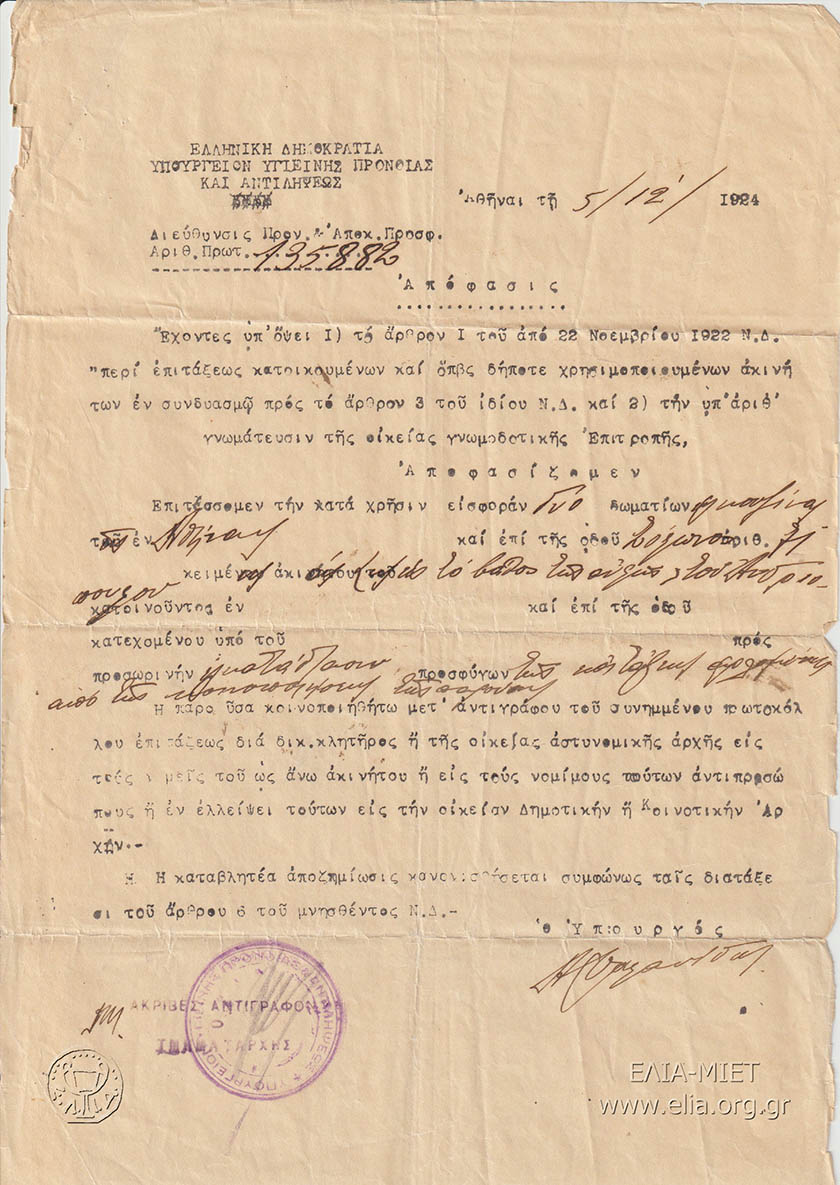 ΕΛΛΗΝΙΚΗ ΔΗΜΟΚΡΑΤΙΑ
ΥΠΟΥΡΓΕΙΟΝ ΥΓΙΕΙΝΗΣ ΠΡΟΝΟΙΑΣ
ΚΑΙ ΑΝΤΙΛΗΨΕΩΣ
Ἀθῆναι τῇ 5/12/ 1924
Διεύθυνσις Προν. & Ἀποκ. Προσφ.
Ἀριθ. Πρωτ. 135882
Ἀπόφασις
Ἔχοντες ὑπ' ὄψει Ι) τό ἄρθρον Ι τοῦ ἀπό 22 Νοεμβρίου 1922 Ν.Δ.
"περί ἐπιτάξεως κατοικουμένων καί ὅπβς δήποτε χρησιμοποιουμένων ἀκινή
των ἐν συνδυασμῷ πρός τό ἄρθρον 3 τοῦ ἰδίου Ν.Δ. καί 2) τήν ὑπ' ἀριθ'
γνωμάτευσιν τῆς οἰκείας γνωμοδοτικῆς Ἐπιτροπῆς,
Ἀποφασίζομεν
Ἐπιτάσσομεν τήν κατά χρῆσιν εἰσφοράν δύο δωματίων
ἐν Ἀθήναις καί ἐπί τῆς ὁδοῦ ἀριθ.
κειμέν τό βάθος τῆς αὐλῆς
κατοικοῦντος ἐν καί ἐπί τῆς ὁδοῦ
κατεχομένου ὑπό τοῦ πρός
προσωρινήν ἐγκατάστασιν προσφύγων τῆς
ἀπό τῆς
Ἡ παροῦσα κοινοποιηθήτω μετ' ἀντιγράφου τοῦ συνημμένου πρωτοκόλ
λου ἐπιτάξεως διά δικ. κλητῆρος ἤ τῆς οἰκείας ἀστυνομικῆς ἀρχῆς εἰς
τούς νομεῖς τοῦ ὡς ἄνω ἀκινήτου ἤ εἰς τούς νομίμους τούτων ἀντιπροσώ
πους ἤ ἐν ἐλλείψει τούτων εἰς τήν οἰκείαν Δημοτικήν ἤ Κοινοτικήν Ἀρ
χήν.-
Ἡ καταβλητέα ἀποζημίωσις κανονισθήσεται συμφώνως ταῖς διατάξε
σι τοῦ ἄρθρου 6 τοῦ μνησθέντος Ν.Δ.-
Ὁ Ὑπουργός
ΑΚΡΙΒΕΣ ΑΝΤΙΓΡΑΦΟΝ
ΤΜΗΜΑΤΑΡΧΗΣ
ΥΠΟΥΡΓΕΙΟΝ ΥΓΙΕΙΝΗΣ ΠΡΟΝΟΙΑΣ ΚΑΙ ΑΝΤΙΛΗΨΕΩΣ
ΕΛΙΑ
ΕΛΙΑ-ΜΙΕΤ
www.elia.org.gr